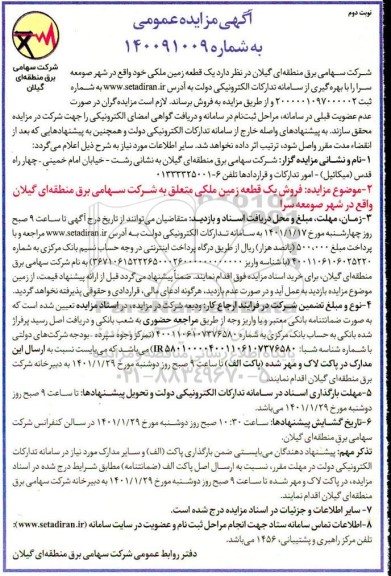 نوبت دوم
آگهی مزایده عمومی
به شماره ۱۴۰۰۹۱۰۰۹
شرکت سهامی برق منطقه‌ای گیلان
شرکت سهامی برق منطقه‌ای گیلان در نظر دارد یک قطعه زمین ملکی خود واقع در شهر صومعه
سرا را با بهره گیری از سامانه تدارکات الکترونیکی دولت به آدرس www.setadiran.ir به شماره
ثبت و از طریق مزایده به فروش برساند. لازم است مزایده گران در صورت
عدم عضویت قبلی در سامانه، مراحل ثبت‌نام در سامانه و دریافت گواهی امضای الکترونیکی را جهت شرکت در مزایده
محقق سازند. به پیشنهادهای واصله خارج از سامانه تدارکات الکترونیکی دولت و همچنین به پیشنهادهایی که بعد از
انقضاء مدت مقرر واصل شود، ترتیب اثر داده نخواهد شد. سایر اطلاعات مورد نیاز به شرح ذیل اعلام می‌گردد:
۱-نام و نشانی مزایده گزار: شرکت سهامی برق منطقه‌ای گیلان به نشانی رشت - خیابان امام خمینی - چهار راه
قدس (میکائیل) - امور تدارکات و قراردادها تلفن ۶-۰۱۳۳۳۳۲۵۰۰۱
۲-موضوع مزایده: فروش یک قطعه زمین ملکی متعلق به شرکت سهامی برق منطقه‌ای گیلان
واقع در شهر صومعه سرا
۳-زمان، مهلت، مبلغ و محل دریافت اسناد و بازدید: متقاضیان می‌توانند از تاریخ درج آگهی تا ساعت ۹ صبح
روز چهارشنبه مورخ ۱۴۰۱/۱/۱۷ به سامانه تدارکات الکترونیکی دولت به آدرس www.setadiran.ir مراجعه و با
پرداخت مبلغ ۵۰۰،۰۰۰ (پانصد هزار) ریال از طریق درگاه پرداخت اینترنتی در وجه حساب سیم بانک مرکزی به شماره
به نام شرکت سهامی برق
منطقه‌ای گیلان، برای خرید اسناد مزایده فوق اقدام نمایند. ضمناً پیشنهاد می‌گردد قبل از ارائه پیشنهاد قیمت، از زمین
موضوع مزایده بازدید به عمل آید و در صورت عدم بازدید، هرگونه ادعای مالی، قراردادی و حقوقی پذیرفته نخواهد گردید.
۴-نوع و مبلغ تضمین شرکت در فرایند ارجاع کار: ودیعه شرکت در مزایده در اسناد مزایده تعیین شده است که
به صورت ضمانتنامه بانکی معتبر و یا واریز وجه از طریق مراجعه حضوری به شعب بانکی و دریافت اصل رسید پرفراژ
شده بانکی به حساب بانک مرکزی به شماره (تمرکز وجوه سپرده - بودجه شرکت‌های دولتی
با شماره شناسه شبا: ) می‌باشد که می‌بایست نسبت به ارسال این
مدارک در پاکت لاک و مهر شده (پاکت الف) تا ساعت ۹ صبح روز دوشنبه مورخ ۱۴۰۱/۱/۲۹ به دبیرخانه شرکت
برق منطقه‌ای گیلان اقدام نمایند.
۵-مهلت بارگذاری اسناد در سامانه تدارکات الکترونیکی دولت و تحویل پیشنهادها: تا ساعت ۹ صبح روز
دوشنبه مورخ ۱۴۰۱/۱/۲۹ می‌باشد.
۶-تاریخ گشایش پیشنهادها: ساعت ۱۰:۳۰ صبح روز دوشنبه مورخ ۱۴۰۱/۱/۲۹ در سالن کنفرانس شرکت
سهامی برق منطقه‌ای گیلان.
تذکر مهم: پیشنهاد دهندگان می‌بایستی ضمن بارگذاری پاکت (الف) و سایر مدارک مورد نیاز در سامانه تدارکات
الکترونیکی دولت در مهلت مقرر، نسبت به ارسال اصل پاکت الف (ضمانتنامه) مطابق شرایط درج شده در اسناد
مزایده، در پاکت لاک و مهر شده تا ساعت ۹ صبح روز دوشنبه مورخ ۱۴۰۱/۱/۲۹ به دبیرخانه شرکت سهامی برق
منطقه‌ای گیلان اقدام نمایند.
۷- سایر اطلاعات و جزئیات در اسناد مزایده درج شده است.
۸-اطلاعات تماس سامانه ستاد جهت انجام مراحل ثبت نام و عضویت در سایت سامانه (www.setadiran.ir):
تلفن مرکز راهبری و پشتیبانی، ۱۴۵۶ می‌باشد.
دفتر روابط عمومی شرکت سهامی برق منطقه‌ای گیلان